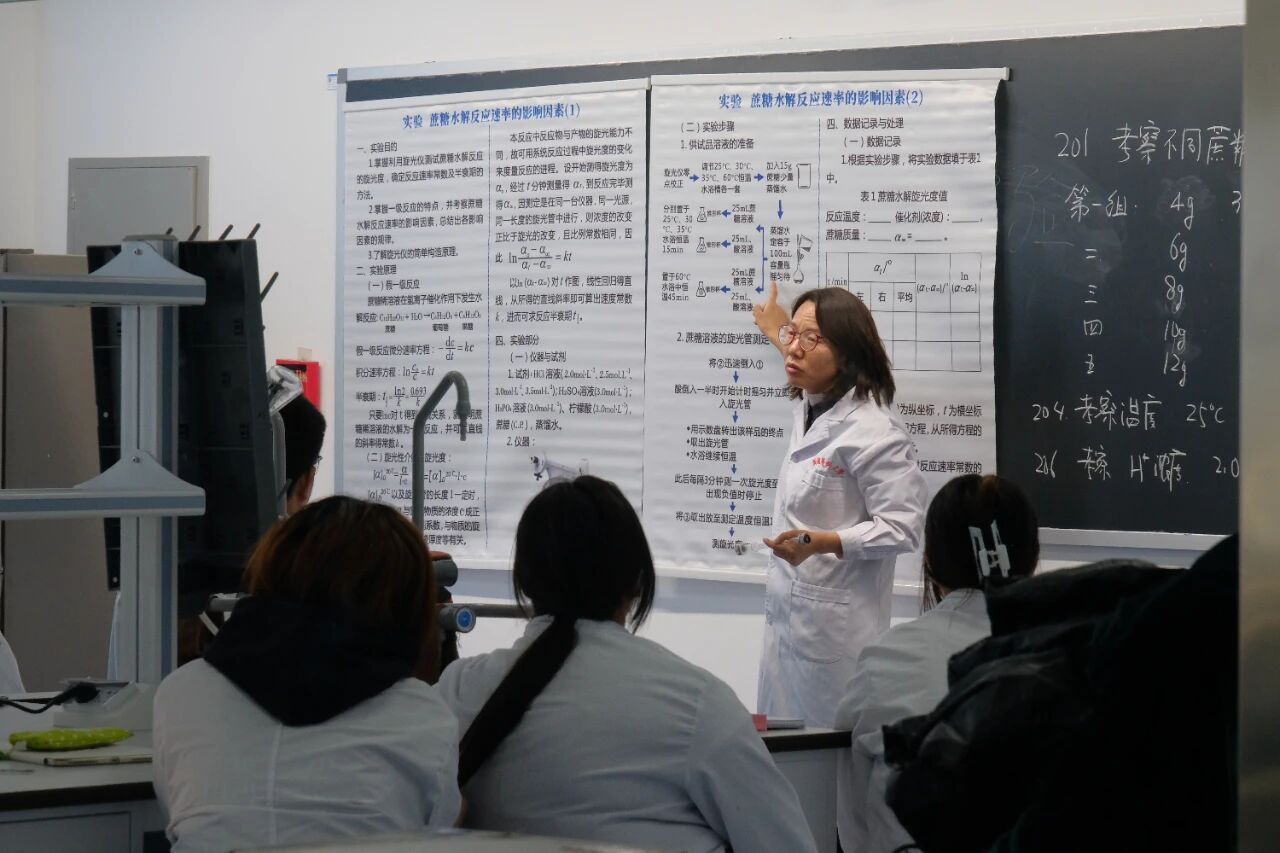 实验 蔗糖水解反应速率的影响因素(1)
一、实验目的
1.掌握利用旋光仪测试蔗糖水解反应
的旋光度，确定反应速率常数及半衰期的
方法。
2.掌握一级反应的特点，并考察蔗糖
水解反应速率的影响因素，总结出各影响
因素的规律。
3.了解旋光仪的简单构造原理。
二、实验原理
（一）假一级反应
蔗糖稀溶液在氢离子催化作用下发生水
解反应: C₁₂H₂₂O₁₁ + H₂O → C₆H₁₂O₆ + C₆H₁₂O₆
蔗糖 葡萄糖 果糖
假一级反应微分速率方程: -dc/dt = kc
积分速率方程: ln c₀/c = kt
半衰期: = ln2/k = 0.693/k
只要 对t
蔗糖稀溶液的水解为一 反应，并可 直线
的斜率得常数k。
（二）旋光性 旋光度:
以及旋 的长度l一定时，
物质的浓度c成正
系数，与物质的旋
厚度等有关。
本反应中反应物与产物的旋光能力不
同，故可用系统反应过程中旋光度的变化
来度量反应的进程。设开始测得旋光度为
α₀, 经过t分钟测量得 αt, 到反应完毕测
得α∞, 因测定是在同一台仪器，同一光源，
同一长度的旋光管中进行，则浓度的改变
正比于旋光的改变，且比例常数相同，因
此 ln (α₀-α∞)/(αt-α∞) = kt
以ln(αt-α∞)对t作图，线性回归得直
线，从所得的直线斜率即可算出速度常数
k，进而可求反应半衰期
四、实验部分
（一）仪器与试剂
1.试剂: HCl溶液(2.0mol·L⁻¹, 2.5mol·L⁻¹,
3.0mol·L⁻¹, 3.5mol·L⁻¹); H₂SO₄溶液(3.0mol·L⁻¹),
H₃PO₄溶液(3.0mol·L⁻¹)、柠檬酸(3.0mol·L⁻¹),
蔗糖(C.P.), 蒸馏水。
2.仪器:
实验 蔗糖水解反应速率的影响因素(2)
（二）实验步骤
1.供试品溶液的准备
旋光仪零
点校正
调节25℃、30℃、
35℃、60℃恒温
水浴槽各一套
加入15g
蔗糖少量
蒸馏水
分别置于
25℃、30
℃、35℃
水浴恒温
15min
25mL蔗
糖溶液
25mL
酸溶液
蒸馏水
定容于
100mL
容量瓶
置于60℃
水浴中恒
温45min
25mL蔗
糖溶液
25mL
酸溶液
2.蔗糖溶液的旋光管测定
将②迅速倒入①
酸倒入一半时开始计时摇匀并立即
入旋光管
•用示数盘转出该样品的终点
•取出旋光管
•水浴继续恒温
此后每隔3分钟测一次旋光度至
出现负值时停止
取出放至测定温度恒温
测旋光
四、数据记录与处理
（一）数据记录
1.根据实验步骤，将实验数据填于表1
中。
表1蔗糖水解旋光度值
反应温度: ____ 催化剂(浓度): ____,
蔗糖质量: ____ α∞= ____。
t/min αt/° (αt-α∞)/° ln(αt-α∞)
左 右 平均
为纵坐标，t为横坐标
方程，从所得方程的
反应速率常数的
201 考察不同蔗糖
第一组. 4g 3
二 6g
三 8g
四 10g
五 12g
204. 考察温度 25℃
206 考察 H⁺浓度 2.0